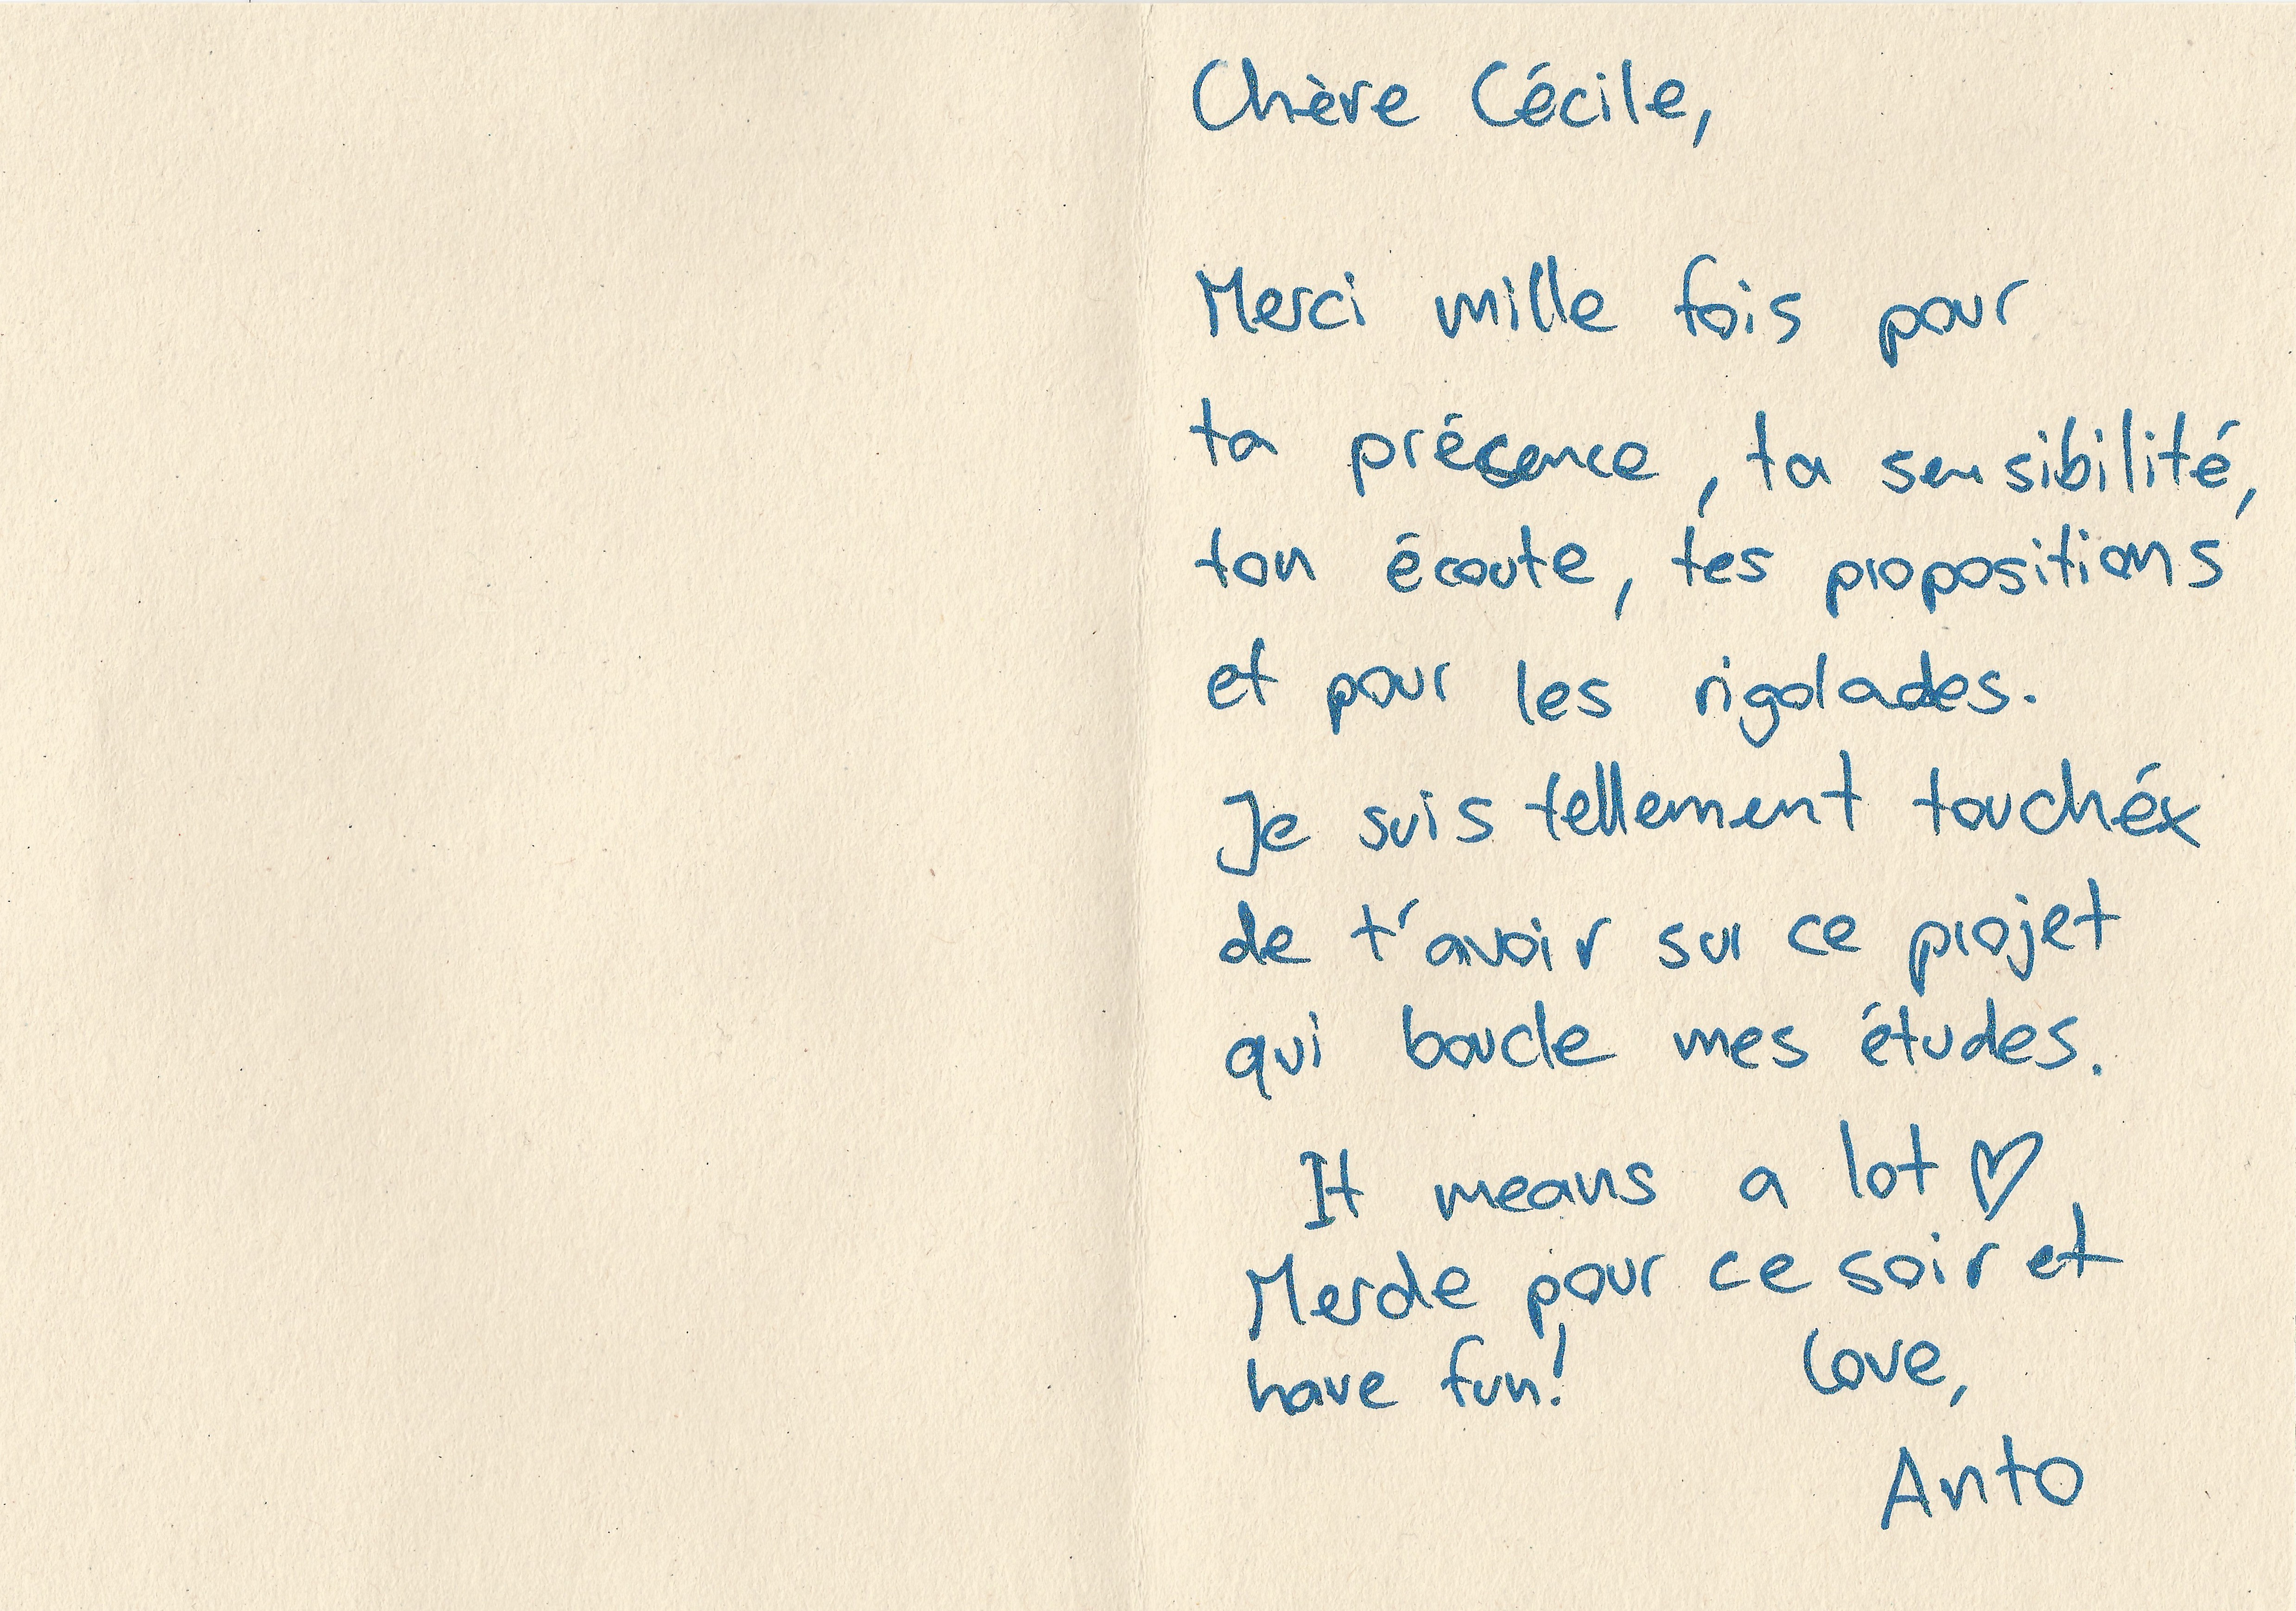 Chère Cécile,
Merci mille fois pour
ta présence, ta sensibilité,
ton écoute, tes propositions
et pour les rigolades.
Je suis tellement touchéx
de t'avoir sur ce projet
qui boucle mes études.
It means a lot ♡
Merde pour ce soir et
have fun! Love,
Anto